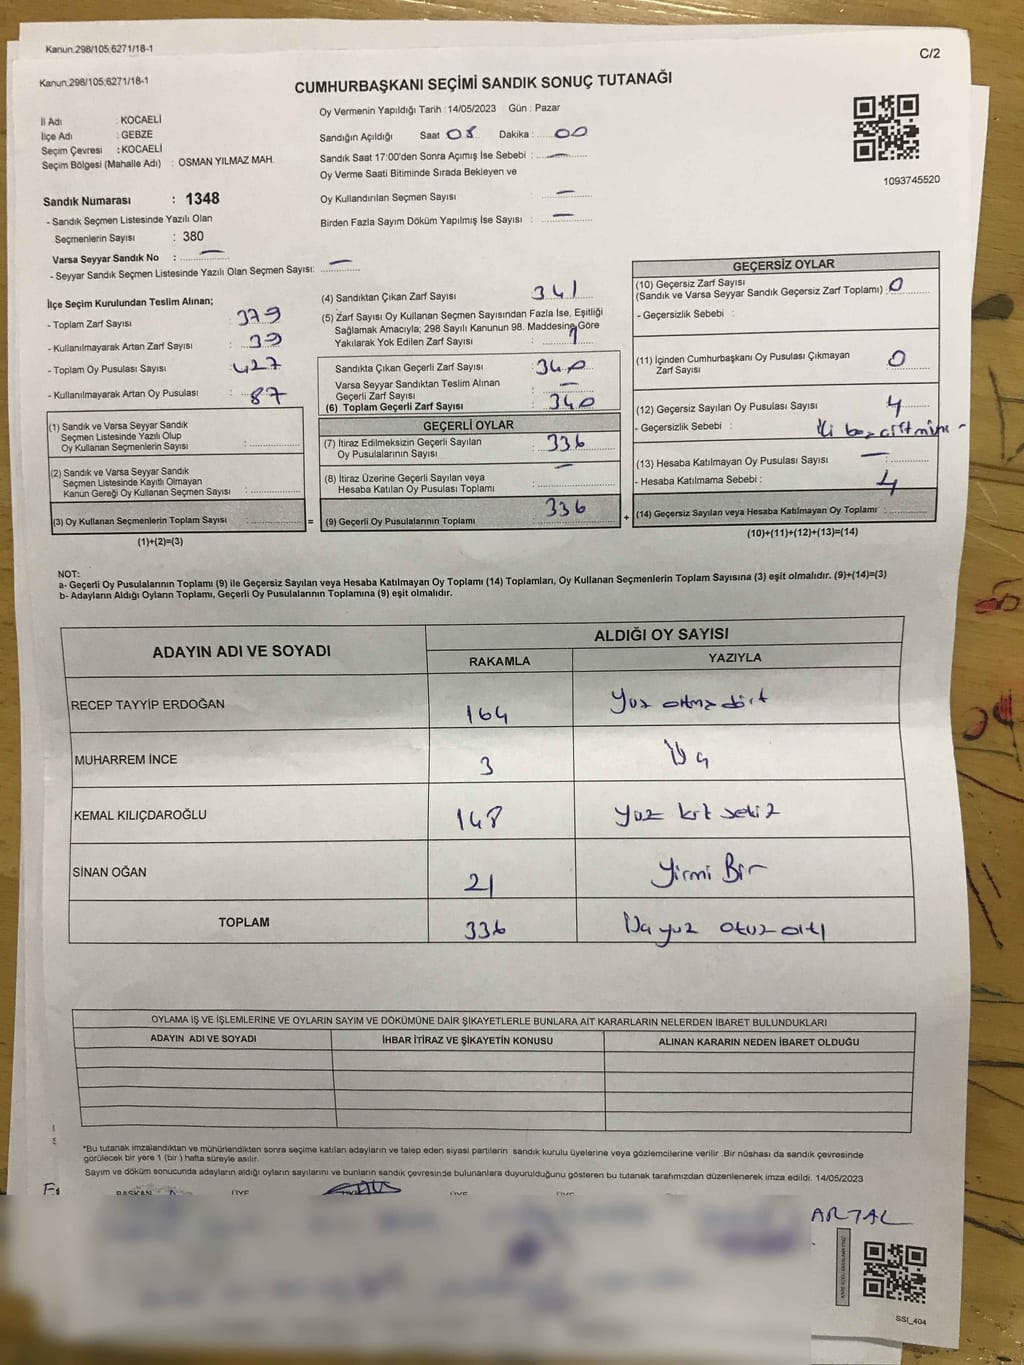 Kanun:298/105;6271/18-1
Kanun:298/105;6271/18-1
C/2
CUMHURBAŞKANI SEÇİMİ SANDIK SONUÇ TUTANAĞI
İl Adı : KOCAELİ
İlçe Adı : GEBZE
Seçim Çevresi : KOCAELİ
Seçim Bölgesi (Mahalle Adı) : OSMAN YILMAZ MAH.
Oy Vermenin Yapıldığı Tarih : 14/05/2023 Gün : Pazar
Sandığın Açıldığı Saat 08 Dakika : 00
Sandık Saat 17:00'den Sonra Açımış İse Sebebi : —
Oy Verme Saati Bitiminde Sırada Bekleyen ve
Oy Kullandırılan Seçmen Sayısı : —
Birden Fazla Sayım Döküm Yapılmış İse Sayısı : —
1093745520
Sandık Numarası : 1348
- Sandık Seçmen Listesinde Yazılı Olan
Seçmenlerin Sayısı : 380
Varsa Seyyar Sandık No : —
- Seyyar Sandık Seçmen Listesinde Yazılı Olan Seçmen Sayısı: —
İlçe Seçim Kurulundan Teslim Alınan;
- Toplam Zarf Sayısı : 379
- Kullanılmayarak Artan Zarf Sayısı : 39
- Toplam Oy Pusulası Sayısı : 427
- Kullanılmayarak Artan Oy Pusulası : 87
(1) Sandık ve Varsa Seyyar Sandık
Seçmen Listesinde Yazılı Olup
Oy Kullanan Seçmenlerin Sayısı :
(2) Sandık ve Varsa Seyyar Sandık
Seçmen Listesinde Kayıtlı Olmayan
Kanun Gereği Oy Kullanan Seçmen Sayısı :
(3) Oy Kullanan Seçmenlerin Toplam Sayısı :
(1)+(2)=(3)
(4) Sandıktan Çıkan Zarf Sayısı : 341
(5) Zarf Sayısı Oy Kullanan Seçmen Sayısından Fazla İse, Eşitliği
Sağlamak Amacıyla; 298 Sayılı Kanunun 98. Maddesine Göre
Yakılarak Yok Edilen Zarf Sayısı : 1
Sandıkta Çıkan Geçerli Zarf Sayısı : 340
Varsa Seyyar Sandıktan Teslim Alınan
Geçerli Zarf Sayısı : —
(6) Toplam Geçerli Zarf Sayısı : 340
GEÇERLİ OYLAR
(7) İtiraz Edilmeksizin Geçerli Sayılan
Oy Pusulalarının Sayısı : 336
(8) İtiraz Üzerine Geçerli Sayılan veya
Hesaba Katılan Oy Pusulası Toplamı : —
= (9) Geçerli Oy Pusulalarının Toplamı : 336
GEÇERSİZ OYLAR
(10) Geçersiz Zarf Sayısı
(Sandık ve Varsa Seyyar Sandık Geçersiz Zarf Toplamı) : 0
- Geçersizlik Sebebi :
(11) İçinden Cumhurbaşkanı Oy Pusulası Çıkmayan
Zarf Sayısı : 0
(12) Geçersiz Sayılan Oy Pusulası Sayısı : 4
- Geçersizlik Sebebi :
(13) Hesaba Katılmayan Oy Pusulası Sayısı : —
- Hesaba Katılmama Sebebi : 4
+ (14) Geçersiz Sayılan veya Hesaba Katılmayan Oy Toplamı :
(10)+(11)+(12)+(13)=(14)
NOT:
a- Geçerli Oy Pusulalarının Toplamı (9) ile Geçersiz Sayılan veya Hesaba Katılmayan Oy Toplamı (14) Toplamları, Oy Kullanan Seçmenlerin Toplam Sayısına (3) eşit olmalıdır. (9)+(14)=(3)
b- Adayların Aldığı Oyların Toplamı, Geçerli Oy Pusulalarının Toplamına (9) eşit olmalıdır.
ADAYIN ADI VE SOYADI ALDIĞI OY SAYISI
RAKAMLA YAZIYLA
RECEP TAYYİP ERDOĞAN 164 Yüz altmış dört
MUHARREM İNCE 3 Üç
KEMAL KILIÇDAROĞLU 148 Yüz kırk sekiz
SİNAN OĞAN 21 Yirmi Bir
TOPLAM 336 Üç yüz otuz altı
OYLAMA İŞ VE İŞLEMLERİNE VE OYLARIN SAYIM VE DÖKÜMÜNE DAİR ŞİKAYETLERLE BUNLARA AİT KARARLARIN NELERDEN İBARET BULUNDUKLARI
ADAYIN ADI VE SOYADI İHBAR İTİRAZ VE ŞİKAYETİN KONUSU ALINAN KARARIN NEDEN İBARET OLDUĞU
*Bu tutanak imzalandıktan ve mühürlendikten sonra seçime katılan adayların ve talep eden siyasi partilerin sandık kurulu üyelerine veya gözlemcilerine verilir .Bir nüshası da sandık çevresinde
görülecek bir yere 1 (bir ) hafta süreyle asılır.
Sayım ve döküm sonucunda adayların aldığı oyların sayılarını ve bunların sandık çevresinde bulunanlara duyurulduğunu gösteren bu tutanak tarafımızdan düzenlenerek imza edildi. 14/05/2023
BAŞKAN ÜYE ÜYE ÜYE
ARTAL
SSI_404